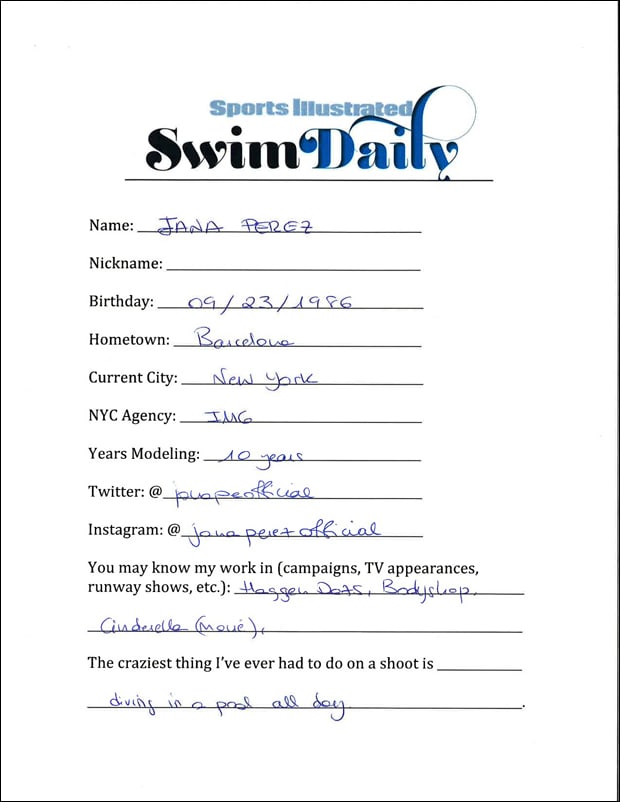 Sports Illustrated
Swim Daily
Name: JANA PEREZ
Nickname:
Birthday: 09/23/1986
Hometown: Barcelona
Current City: New York
NYC Agency: IMG
Years Modeling: 10 years
Twitter: @
Instagram: @janaperezofficial
You may know my work in (campaigns, TV appearances,
runway shows, etc.): Haggen Dazs, Bodyshop,
Cinderella (movie),
The craziest thing I've ever had to do on a shoot is
diving in a pool all day.